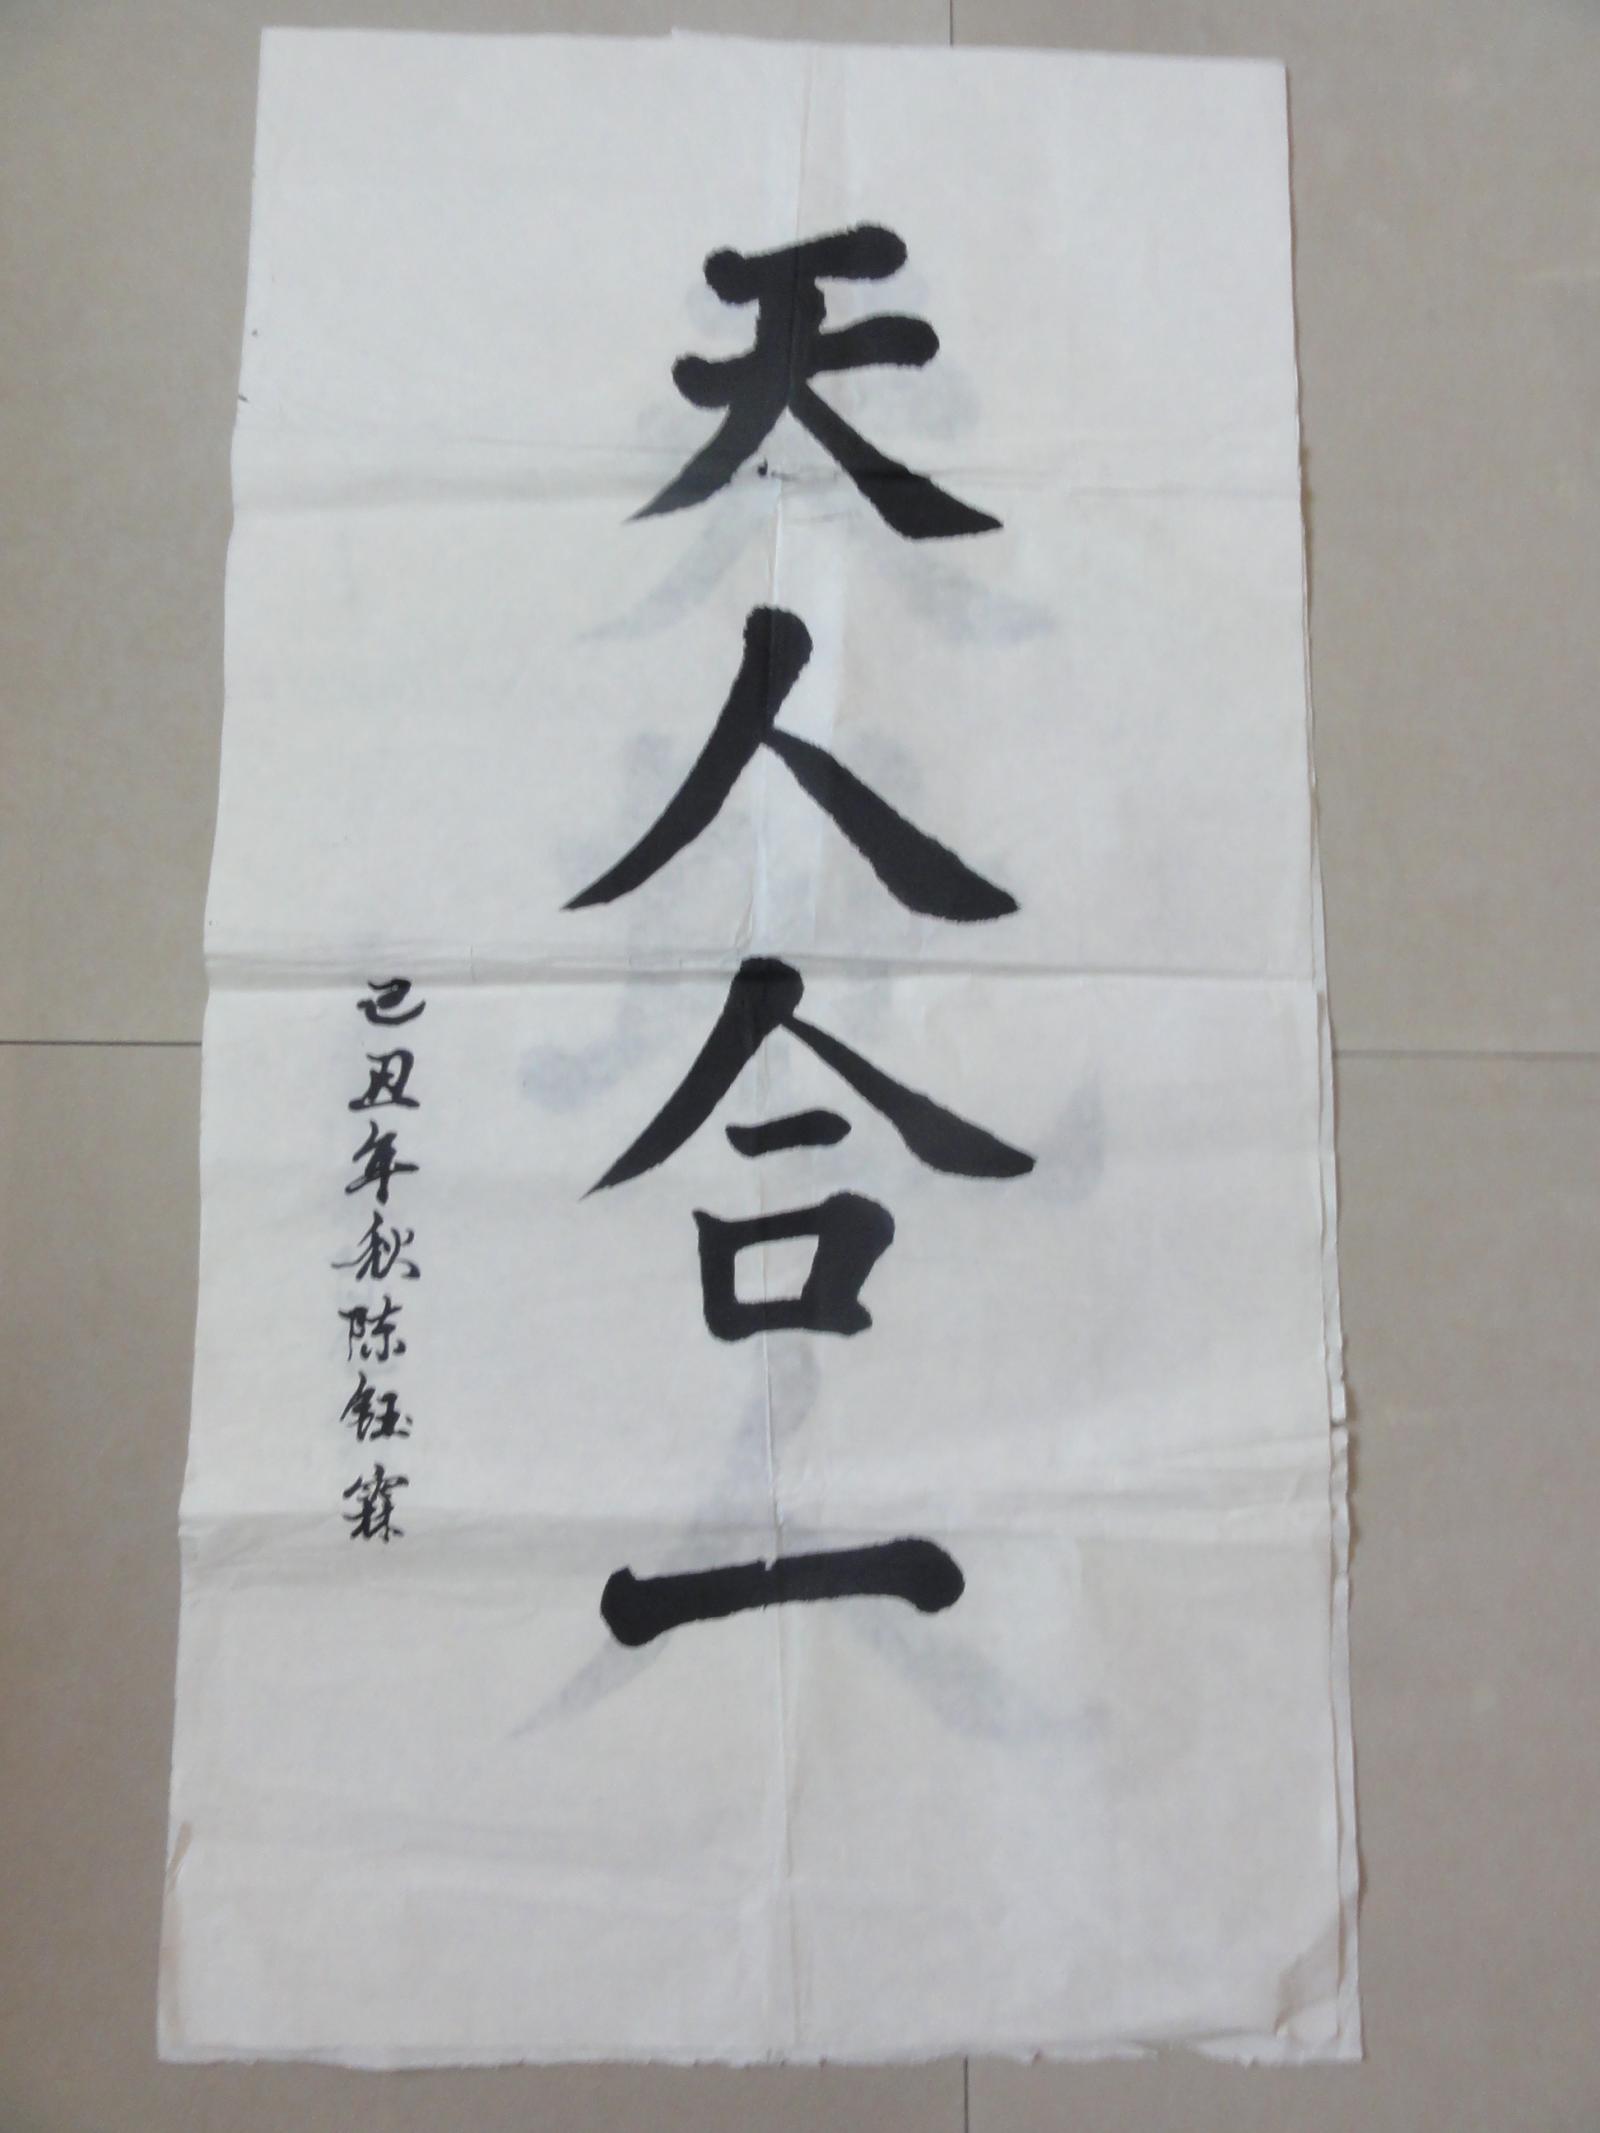 天人合一
己丑年秋陈钰霖